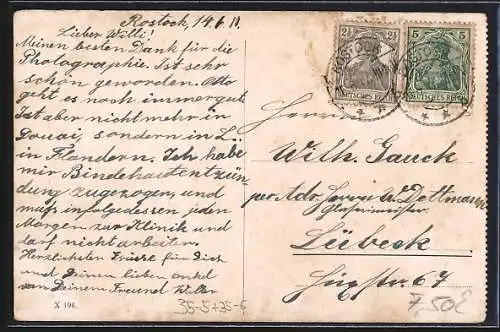 Rostock, 14.6.18.
Lieber Willi!
Meinen besten Dank für die
Photographie. Ist sehr
schön geworden. Otto
geht es noch immer gut.
Ist aber nicht mehr in
Douai, sondern in L.
in Flandern. Ich habe
mir Bindehautentzün-
dung zugezogen, und
muß infolgedessen jeden
Morgen zur Klinik und
darf nicht arbeiten.
Herzlichste Grüße für Dich
und Deinen lieben Onkel
von Deinem Freund Walter
X 196.
35-5+35-6
2½ 2½
DEUTSCHES REICH
5 5
DEUTSCHES REICH
ROSTOCK
ROSTOCK
Herrn
Wilh. Gauck
per Adr. Herrn W. Dettmann
Glasermeister
Lübeck
Hüxstr. 67
7,50€